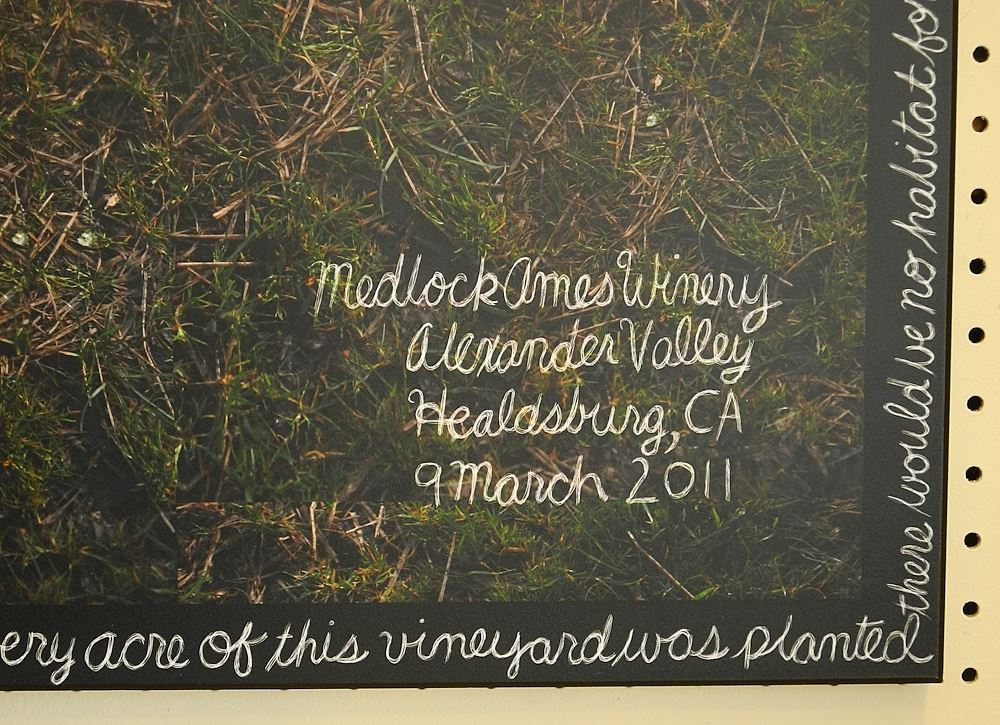 Medlock Ames Winery
Alexander Valley
Healdsburg, CA
9 March 2011
ery acre of this vineyard was planted
there would be no habitat for